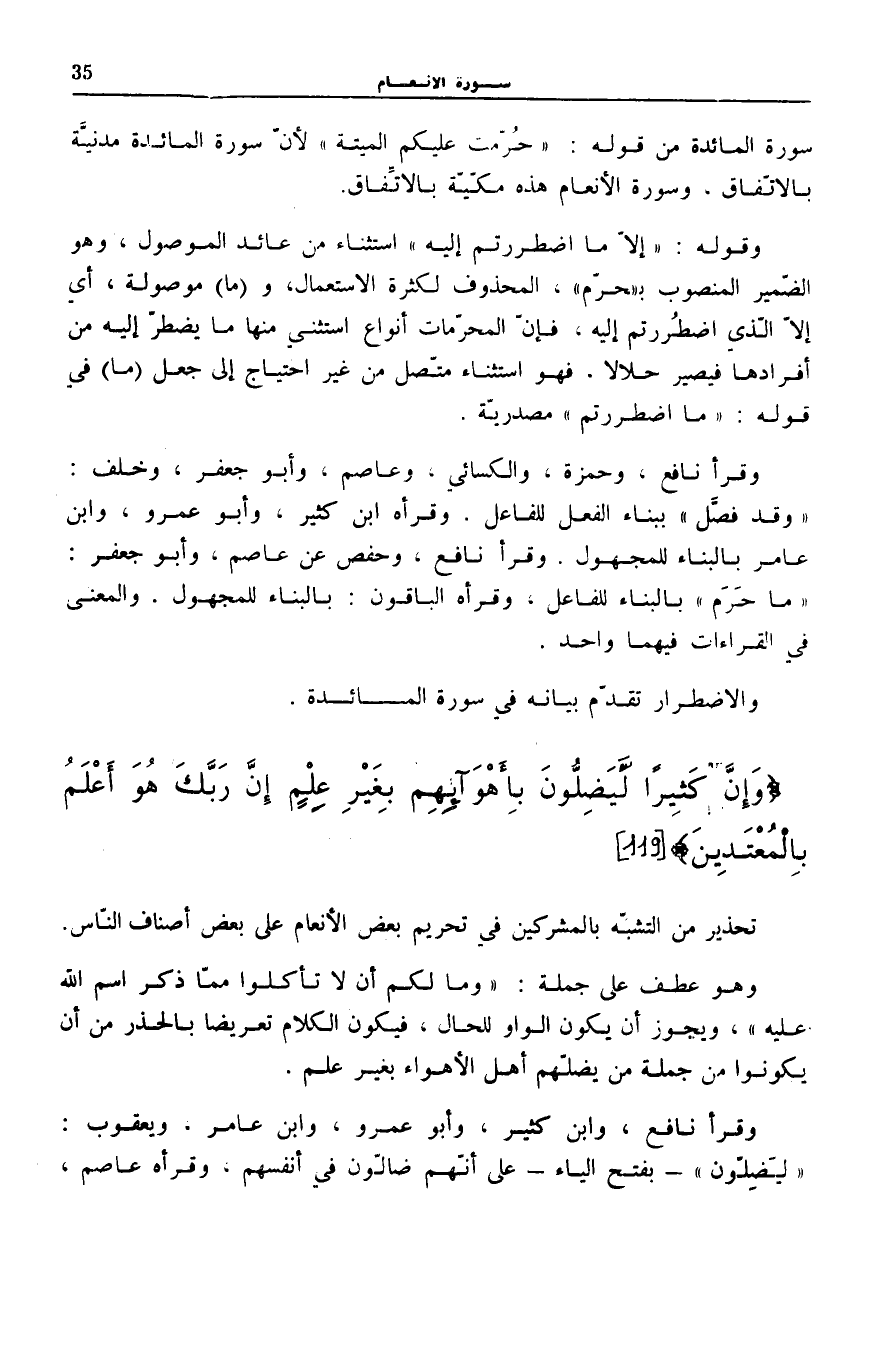 35
ســورة الانـعـام
سورة المائدة من قوله : « حُرّمت عليكم الميتة » لأنّ سورة المائدة مدنيَّة
بالاتّفاق . وسورة الأنعام هذه مكّيّة بالاتِّفاق.
وقوله : « إلاّ ما اضطررتم إليه » استثناء من عائد الموصول ، وهو
الضّمير المنصوب بـ«حرّم» ، المحذوف لكثرة الاستعمال، و (ما) موصولة ، أي
إلاّ الّذي اضطُررتم إليه ، فإنّ المحرّمات أنواع استثنى منها ما يضطرّ إليه من
أفرادها فيصير حلالا . فهو استثناء متّصل من غير احتياج إلى جعل (ما) في
قوله : « ما اضطررتم » مصدريّة .
وقرأ نافع ، وحمزة ، والكسائي ، وعاصم ، وأبو جعفر ، وخلف :
« وقد فصَّل » ببناء الفعل للفاعل . وقرأه ابن كثير ، وأبو عمرو ، وابن
عامر بالبناء للمجهول . وقرأ نافع ، وحفص عن عاصم ، وأبو جعفر :
« ما حَرّم » بالبناء للفاعل ، وقرأه الباقون : بالبناء للمجهول . والمعنى
في القراءات فيهما واحد .
والاضطرار تقدّم بيانه في سورة المــائــدة .
﴿وَإِنَّ كَثِيرًا لَّيَضِلُّونَ بِأَهْوَآئِهِم بِغَيْرِ عِلْمٍ إِنَّ رَبَّكَ هُوَ أَعْلَمُ
بِالْمُعْتَدِينَ﴾ [119]
تحذير من التشبّه بالمشركين في تحريم بعض الأنعام على بعض أصناف النّاس.
وهو عطف على جملة : « وما لكم أن لا تأكلوا ممّا ذكر اسم الله
عليه » ، ويجوز أن يكون الواو للحال ، فيكون الكلام تعريضا بالحذر من أن
يكونوا من جملة من يضلّهم أهل الأهواء بغير علم .
وقرأ نافع ، وابن كثير ، وأبو عمرو ، وابن عامر ، ويعقوب :
« ليَضِلّون » – بفتح الياء – على أنّهم ضالّون في أنفسهم ، وقرأه عاصم ،